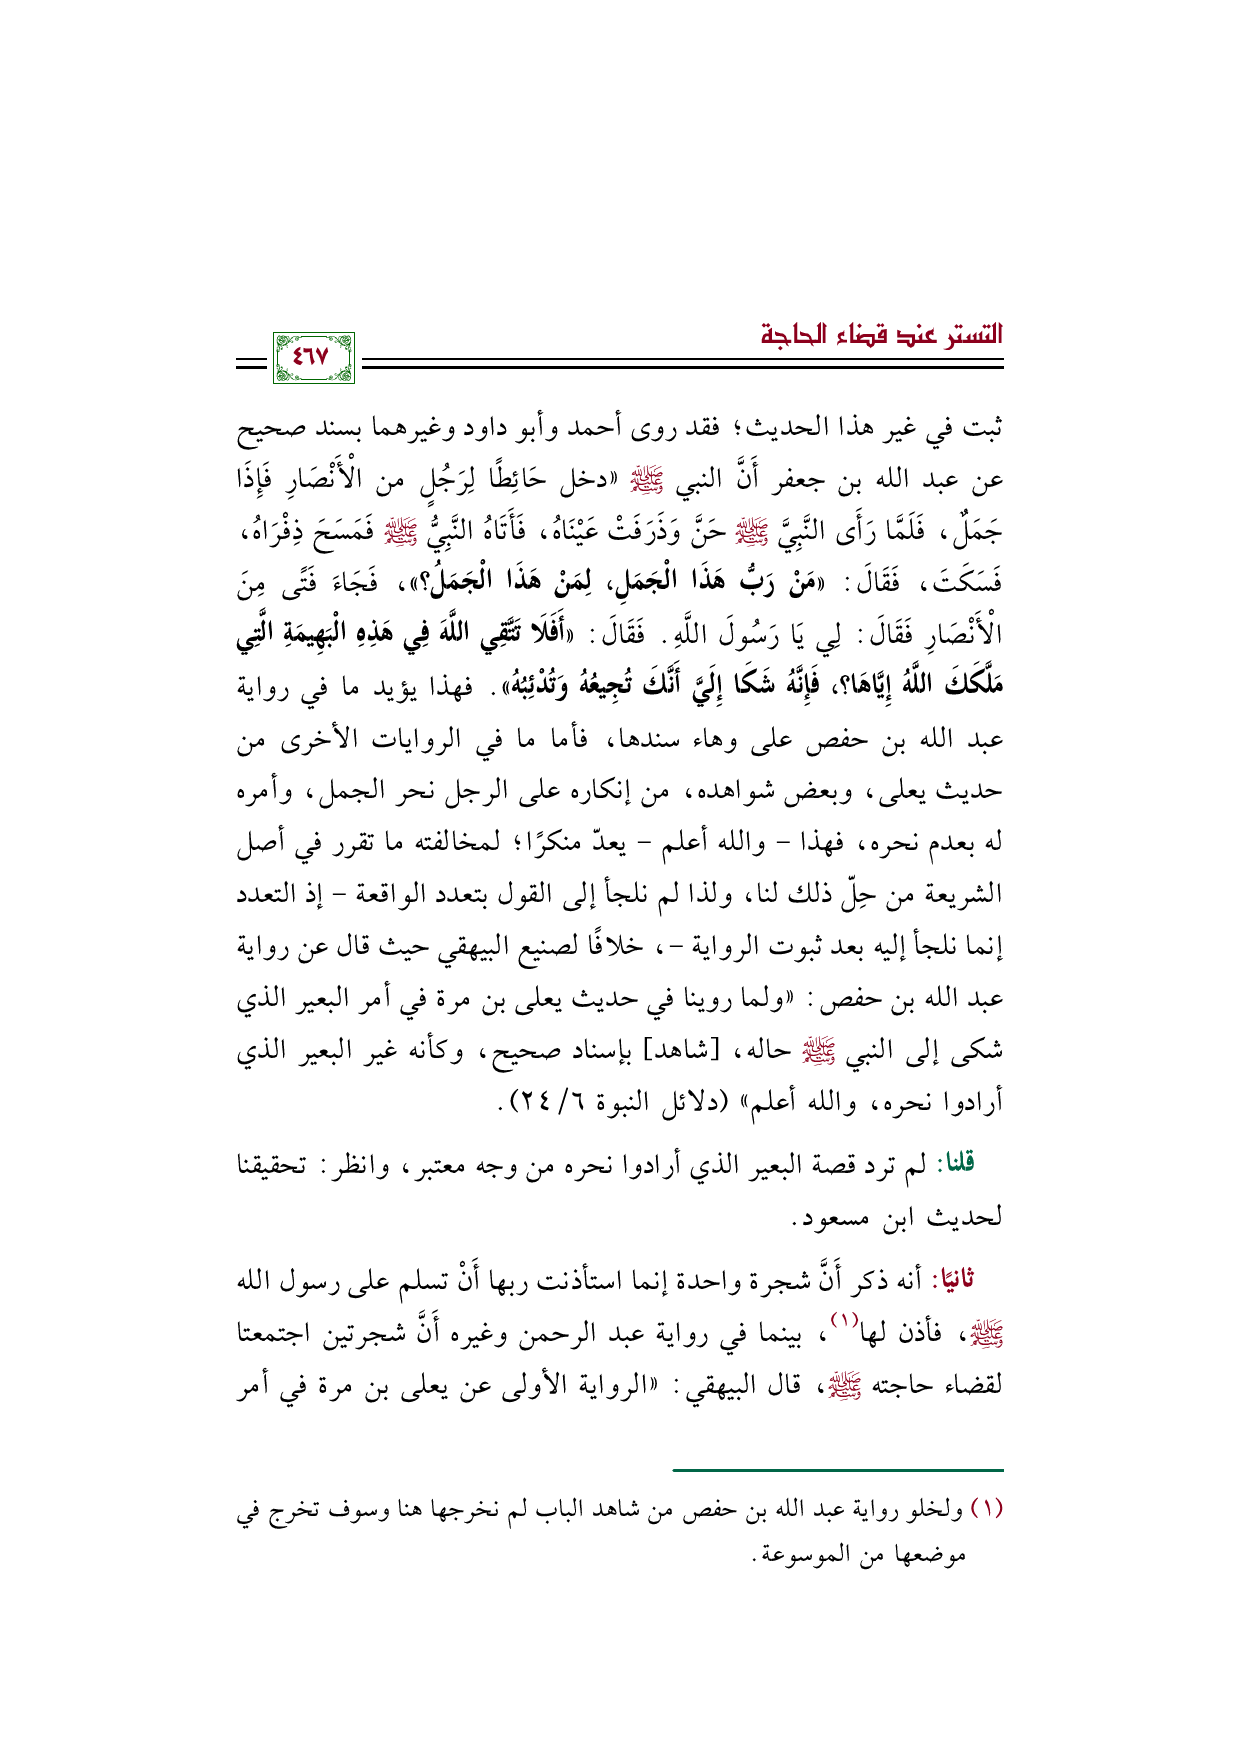 التستر عند قضاء الحاجة
٤٦٧
ثبت في غير هذا الحديث؛ فقد روى أحمد وأبو داود وغيرهما بسند صحيح
عن عبد الله بن جعفر أَنَّ النبي ﷺ «دخل حَائِطًا لِرَجُلٍ من الْأَنْصَارِ فَإِذَا
جَمَلٌ، فَلَمَّا رَأَى النَّبِيَّ ﷺ حَنَّ وَذَرَفَتْ عَيْنَاهُ، فَأَتَاهُ النَّبِيُّ ﷺ فَمَسَحَ ذِفْرَاهُ،
فَسَكَتَ، فَقَالَ: «مَنْ رَبُّ هَذَا الْجَمَلِ، لِمَنْ هَذَا الْجَمَلُ؟»، فَجَاءَ فَتًى مِنَ
الْأَنْصَارِ فَقَالَ: لِي يَا رَسُولَ اللَّهِ. فَقَالَ: «أَفَلَا تَتَّقِي اللَّهَ فِي هَذِهِ الْبَهِيمَةِ الَّتِي
مَلَّكَكَ اللَّهُ إِيَّاهَا؟، فَإِنَّهُ شَكَا إِلَيَّ أَنَّكَ تُجِيعُهُ وَتُدْئِبُهُ». فهذا يؤيد ما في رواية
عبد الله بن حفص على وهاء سندها، فأما ما في الروايات الأخرى من
حديث يعلى، وبعض شواهده، من إنكاره على الرجل نحر الجمل، وأمره
له بعدم نحره، فهذا - والله أعلم - يعدّ منكرًا؛ لمخالفته ما تقرر في أصل
الشريعة من حِلّ ذلك لنا، ولذا لم نلجأ إلى القول بتعدد الواقعة - إذ التعدد
إنما نلجأ إليه بعد ثبوت الرواية -، خلافًا لصنيع البيهقي حيث قال عن رواية
عبد الله بن حفص: «ولما روينا في حديث يعلى بن مرة في أمر البعير الذي
شكى إلى النبي ﷺ حاله، [شاهد] بإسناد صحيح، وكأنه غير البعير الذي
أرادوا نحره، والله أعلم» (دلائل النبوة ٦/ ٢٤).
قلنا: لم ترد قصة البعير الذي أرادوا نحره من وجه معتبر، وانظر: تحقيقنا
لحديث ابن مسعود.
ثانيًا: أنه ذكر أَنَّ شجرة واحدة إنما استأذنت ربها أَنْ تسلم على رسول الله
ﷺ، فأذن لها(١)، بينما في رواية عبد الرحمن وغيره أَنَّ شجرتين اجتمعتا
لقضاء حاجته ﷺ، قال البيهقي: «الرواية الأولى عن يعلى بن مرة في أمر
(١) ولخلو رواية عبد الله بن حفص من شاهد الباب لم نخرجها هنا وسوف تخرج في
موضعها من الموسوعة.